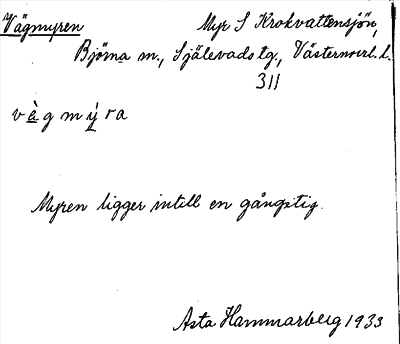 Vägmyren
Myr S Krokvattensjön,
Björna sn., Själevads tg., Västernorrl. l.
311
v à g m ý r a
Myren ligger intill en gångstig.
Asta Hammarberg 1933